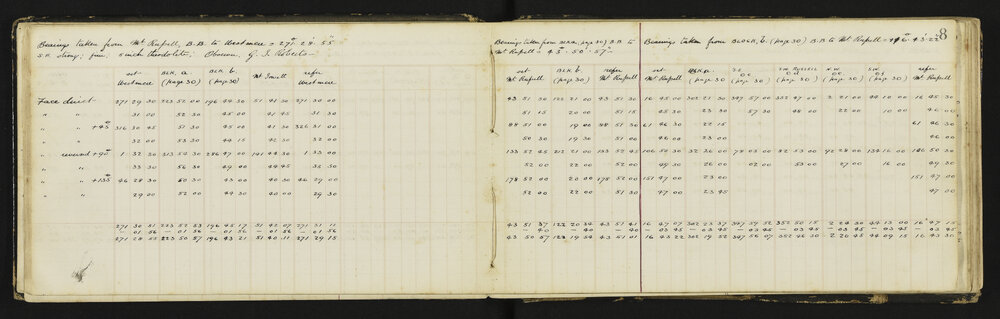 Bearings taken from Mt Russell, B.B. to Westmere = 271° 28' 55"
5 inch theodolite; Observer G. J. Roberts
set Westmere BLK. a (page 30) BLK. b. (page 30) Mt Imell refer Westmere
Face direct 271 29 30 223 52 00 196 44 30 51 41 30 271 31 00
" " 31 00 52 30 45 00 41 45 31 30
" " +45° 316 30 45 51 30 45 00 41 30 326 31 00
" " 32 00 53 30 44 15 42 30 32 00
" reversed +90° 1 32 30 213 54 30 286 47 00 141 44 30 1 33 00
" " 33 30 56 30 49 00 44 45 35 30
" " +135° 46 28 30 50 30 43 00 40 30 46 29 00
" " 29 00 52 00 44 30 40 00 29 30
271 30 51 223 52 53 196 45 17 51 42 07 271 31 11
— 01 56 — 01 56 — 01 56 — 01 56 — 01 56
271 28 55 223 50 57 196 43 21 51 40 11 271 29 15
Bearings taken from BLK.a. page 30) B.B to
Mt Russell = 43° 50' 57"
set Mt Russell BLK. b (page 30) refer Mt Russell
43 51 30 122 21 00 43 51 30
51 15 20 00 51 15
88 51 00 19 00 88 51 30
50 30 19 30 51 00
133 52 45 212 21 00 133 52 45
52 00 22 00 52 00
178 52 00 20 00 178 52 00
52 00 22 00 51 30
43 51 37 122 20 34 43 51 41
— 40 — 40 — 40
43 50 57 122 19 54 43 51 01
8
Bearings taken from BLOCK. b. (page 30) B.B to Mt Russell = 16° 43' 22"
set Mt Russell BLK. a (page 30) (page 30) (page 30) (page 30) (page 30) refer Mt Russell
16 45 00 302 21 30 347 57 00 352 47 00 2 21 00 44 10 00 16 45 30
45 30 23 30 57 30 48 00 22 00 10 00 46 00
61 46 30 22 15 61 46 30
46 00 23 00 46 00
106 50 30 32 26 00 78 03 00 82 53 00 92 28 00 134 16 00 106 50 30
49 30 26 00 02 00 53 00 27 00 16 00 49 30
151 47 00 23 00 151 47 00
47 00 23 45 47 00
16 47 07 302 23 37 347 59 52 352 50 15 2 24 30 44 13 00 16 47 15
— 03 45 — 03 45 — 03 45 — 03 45 — 03 45 — 03 45 — 03 45
16 43 22 302 19 52 347 56 07 352 46 30 2 20 45 44 09 15 16 43 30